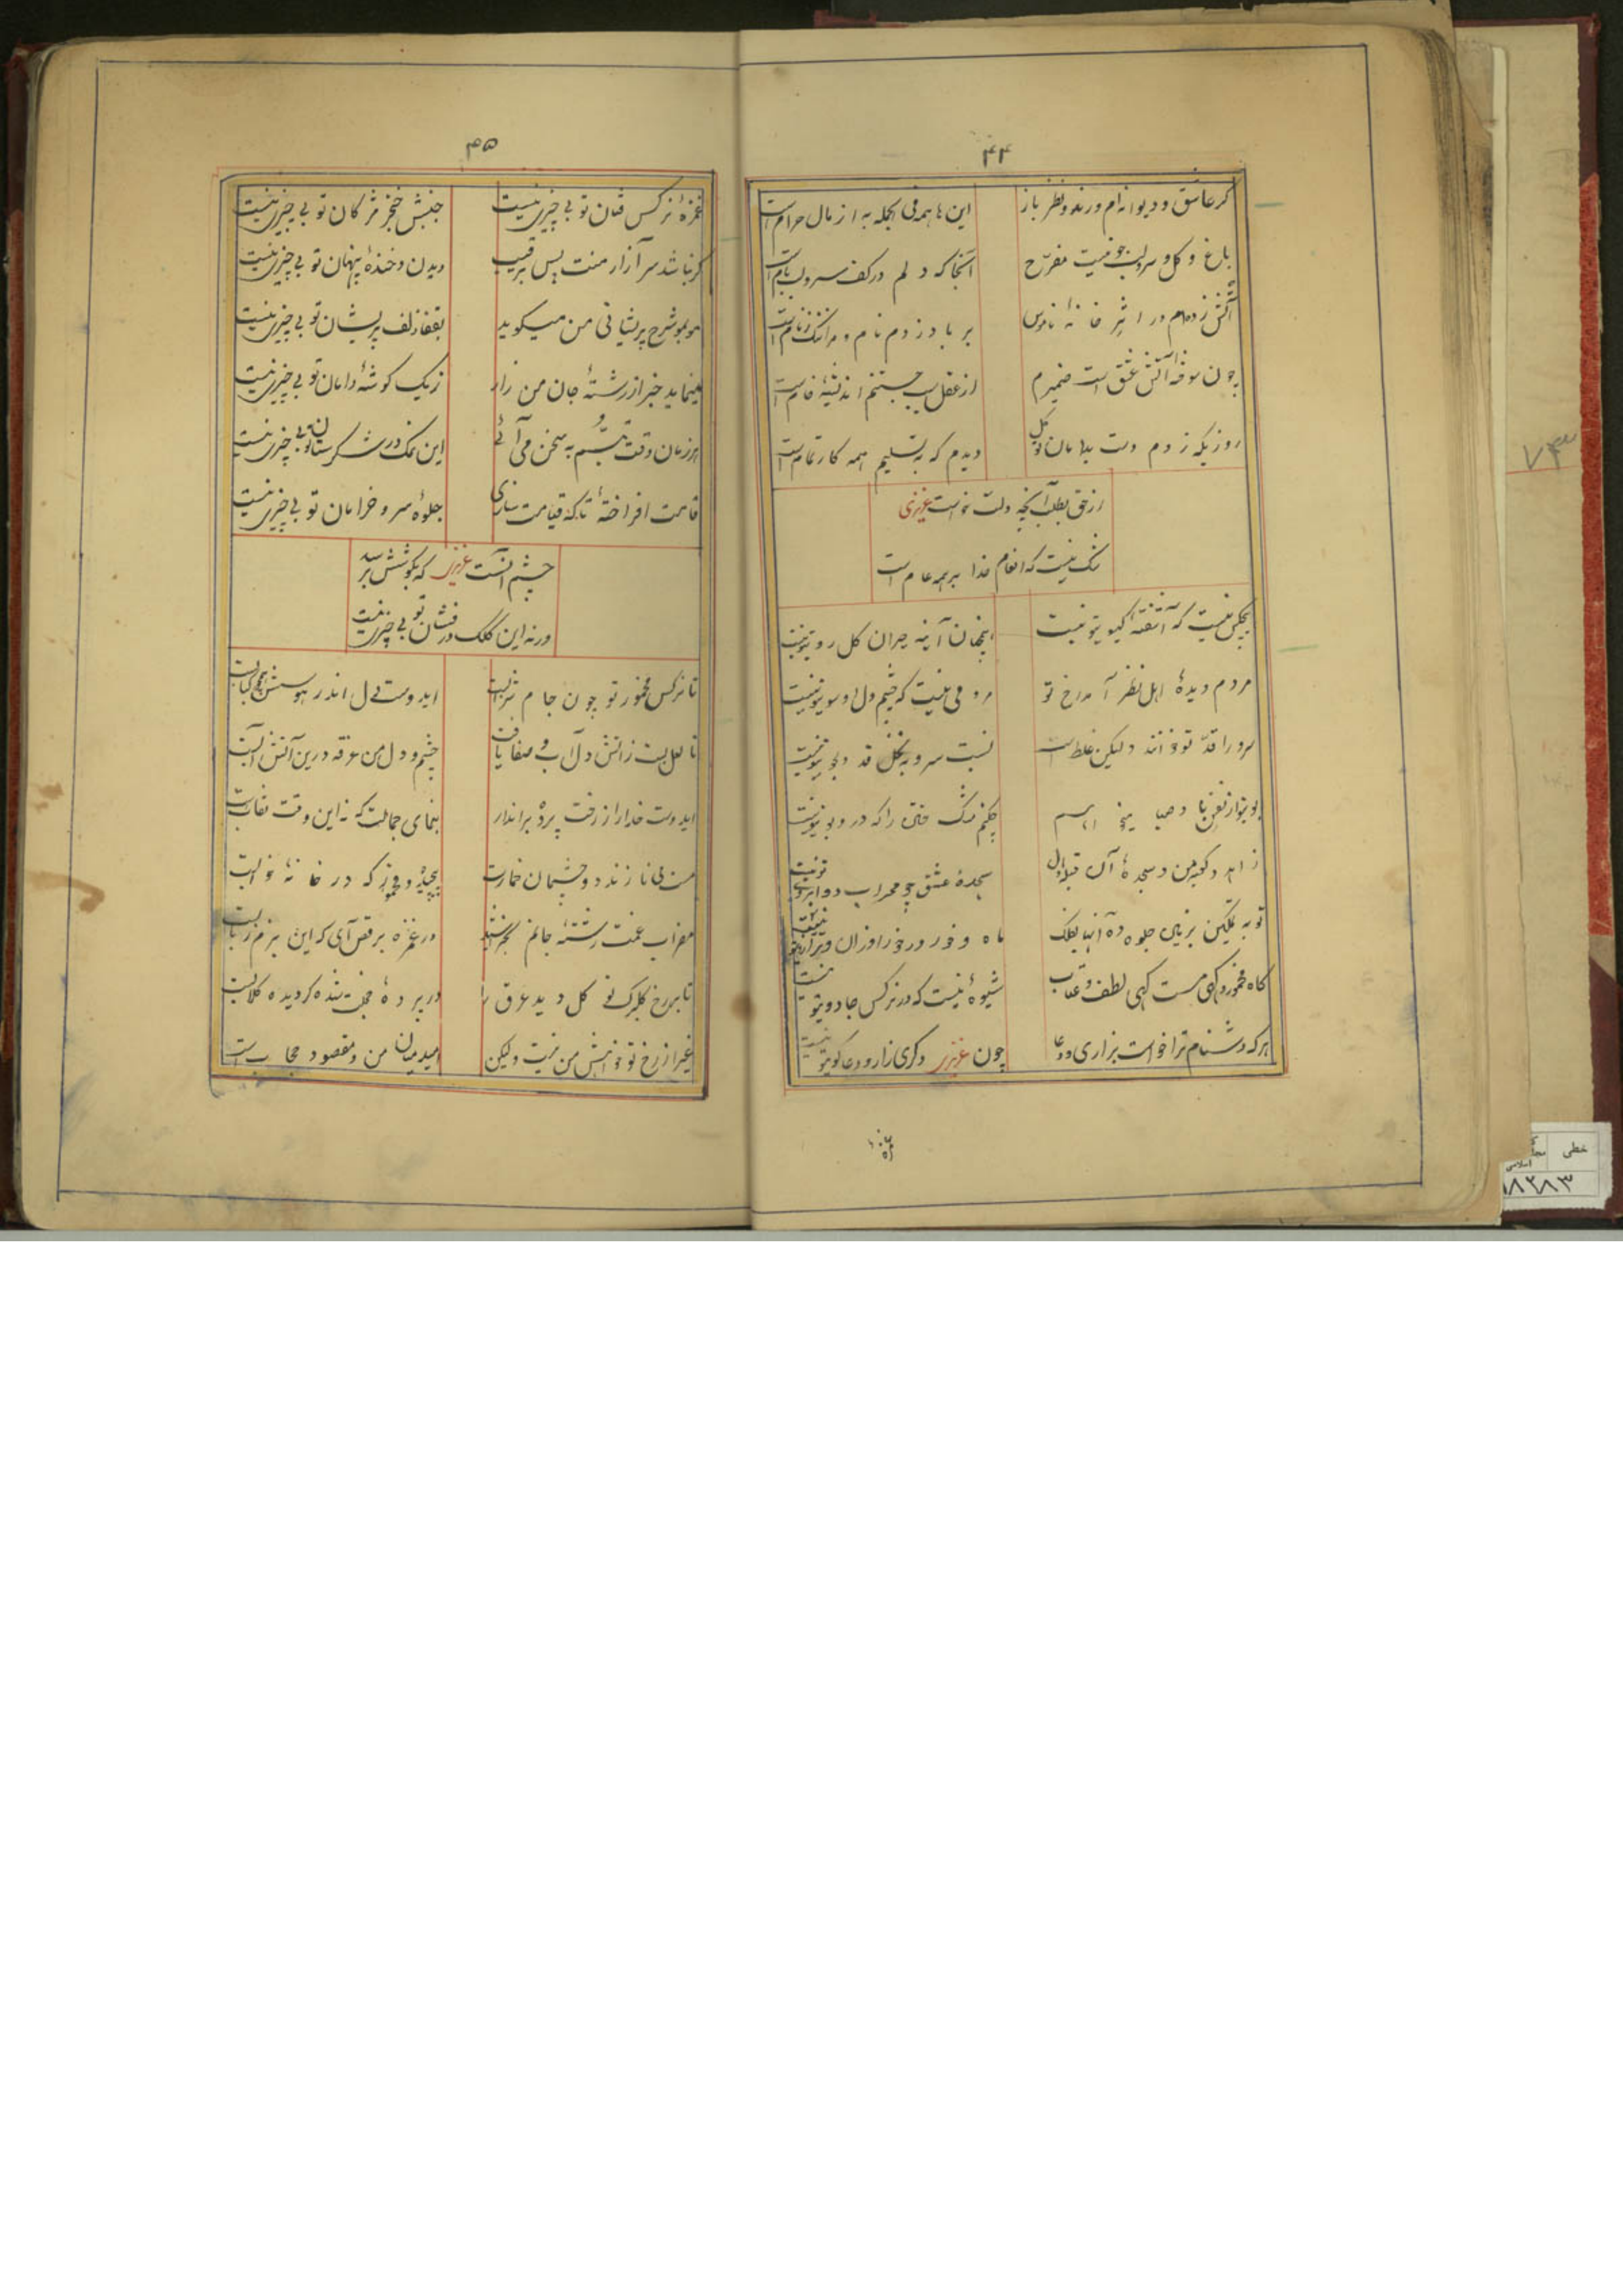 ۴۴
گر عاشق و دیوانه‌ام و رند و نظر باز این ها همه فی الجمله به از مال حرام است
باغ و گل و سرو لب جو نیست مفرّح آنجا که دلم در کف سرو لب بام است
آتش زده‌ام در خانهٔ ناموس بر باد زدم نام و مرا ننگ ز نام است
چون سوخته آتش عشق است ضمیرم از عقل جستنم اندیشهٔ خام است
روزیکه زدم دست بدامان توکل دیدم که به تسلیم همه کار تمام است
از حق بطلب آنچه دلت خواست عزیزی
شک نیست که انعام خدا بر همه عام است
هیچکس نیست که آشفته گیسوی تو نیست اینچنان آینه حیران گل روی تو نیست
مردم دیدهٔ اهل نظر آمد رخ تو مردمی نیست که چشم دل او سوی تو نیست
سرو را قدّ تو خوانند ولیکن غلط است نسبت سرو به نخل قد دلجوی تو نیست
بوی تو از نفس باد صبا چکنم مشک ختن را که در او بوی تو نیست
زاهد و کعبه من و سجدهٔ آن قبله دل سجدهٔ عشق جز محراب دو ابروی تو نیست
تو به تمکین بزمین جلوه ده آنها بفلک ماه و خور در خور اوزان ترازوی تو نیست
گاه مخمور و گهی مست گهی لطف و عتاب شیوهٔ نیست که در نرگس جادوی تو نیست
هر که دشنام ترا خواست بزاری و دعا چون عزیز دگری زار و دعاگوی تو نیست
۴۵
غمزهٔ نرگس فتان تو بی چیزی نیست جنبش خنجر مژگان تو بی چیزی نیست
گر نباشد سر آزار منت پیش رقیب دیدن و خندهٔ پنهان تو بی چیزی نیست
مو بمو شرح پریشانی من میگوید بقفا زلف پریشان تو بی چیزی نیست
مینماید خبر از رشتهٔ جان من زار زیک گوشهٔ دامان تو بی چیزی نیست
هر زمان وقت تبسّم به سخن می‌آئی این نمک در شکرستان تو بی چیزی نیست
قامت افراختهٔ تا که قیامت سازی جلوهٔ سرو خرامان تو بی چیزی نیست
چشم آنست عزیز که بکوشش برسد
ورنه این کلک درفشان تو بی چیزی نیست
تا نرگس مخمور تو چون جام شراب است ایدوست دل اندر هوسش همچو کباب است
تا لعل لبت ز آتش دل آب و صفا یافت چشم و دل من غرقه درین آتش و آب است
ایدوست خدا را ز رخت پرده برانداز بنمای جمالت که نه این وقت نقاب است
مست می نازند دو چشمان خمارت که در خانهٔ خواب است
مضراب غمت رشتهٔ جانم در غمزه برقص آی که این بزم رباب است
تا بر رخ گلبرگ تو گل دید عرق را در پردهٔ خجلت شده گردیده گلاب است
غیر از رخ تو خواهش من نیست ولیکن امید میان من و مقصود حجاب است
۷۴۳
خطی
۱۸۲۸۳